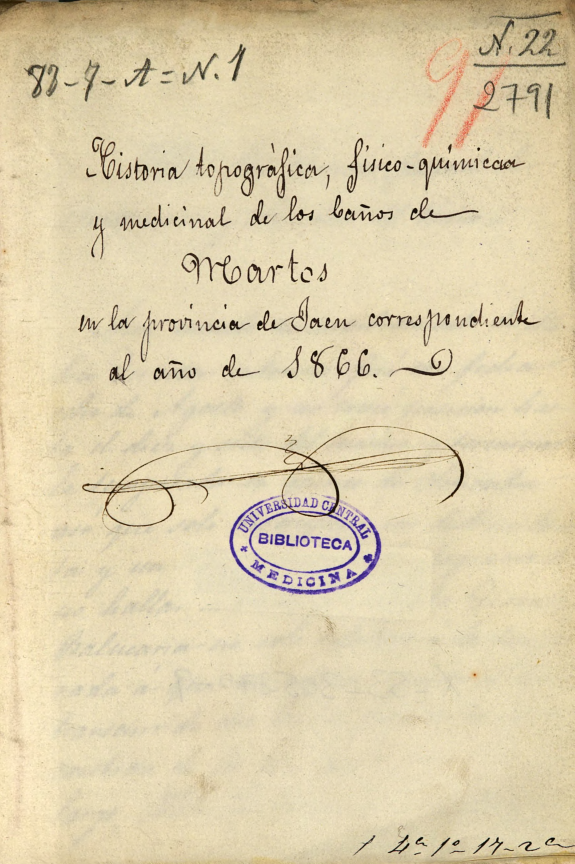 83-7-A=N.1
N. 22
2791
91
Historia topográfica, fisico-quimica
y medicinal de los baños de
Martos
en la provincia de Jaen correspondiente
al año de 1866.
UNIVERSIDAD CENTRAL
BIBLIOTECA
MEDICINA
1 4ª 1º 17-2ª